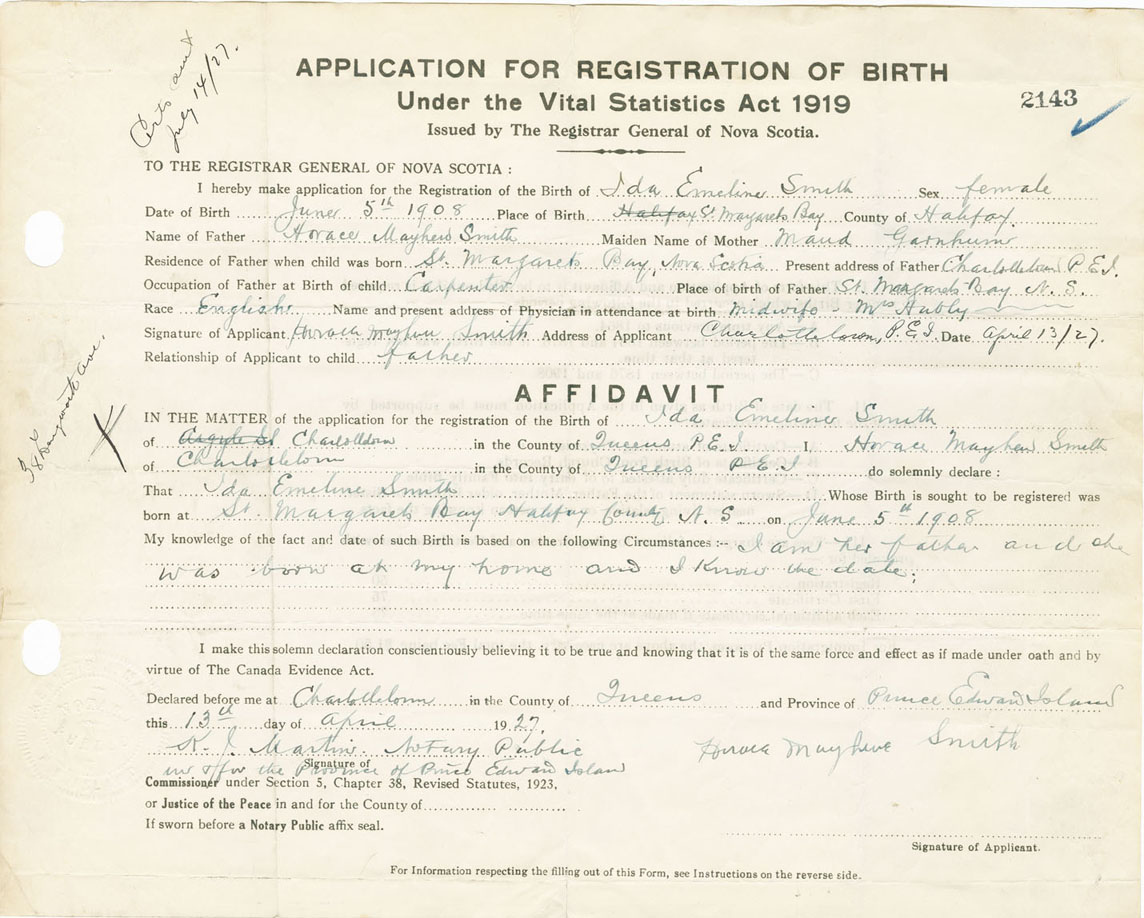 Certs sent
July 14/27.
APPLICATION FOR REGISTRATION OF BIRTH
Under the Vital Statistics Act 1919
2143
Issued by The Registrar General of Nova Scotia.
TO THE REGISTRAR GENERAL OF NOVA SCOTIA :
I hereby make application for the Registration of the Birth of Ida Emeline Smith Sex female
Date of Birth June 5th 1908 Place of Birth Halifax St. Margarets Bay County of Halifax.
Name of Father Horace Mayhew Smith Maiden Name of Mother Maud Garnhum
Residence of Father when child was born St. Margarets Bay, Nova Scotia Present address of Father Charlottetown P.E.I.
Occupation of Father at Birth of child Carpenter Place of birth of Father St. Margarets Bay N.S.
Race English Name and present address of Physician in attendance at birth midwife - Mrs Hubly
Signature of Applicant Horace Mayhew Smith Address of Applicant Charlottetown, P.E.I. Date April 13/27.
Relationship of Applicant to child father
AFFIDAVIT
IN THE MATTER of the application for the registration of the Birth of Ida Emeline Smith
of Argyle St Charlottetown in the County of Queens P.E.I. I, Horace Mayhew Smith
of Charlottetown in the County of Queens P.E.I do solemnly declare :
That Ida Emeline Smith Whose Birth is sought to be registered was
born at St. Margarets Bay Halifax County N.S. on June 5th 1908
My knowledge of the fact and date of such Birth is based on the following Circumstances :-- I am her father and she
was born at my home and I know the date.
I make this solemn declaration conscientiously believing it to be true and knowing that it is of the same force and effect as if made under oath and by
virtue of The Canada Evidence Act.
Declared before me at Charlottetown in the County of Queens and Province of Prince Edward Island
this 13th day of April 1927.
K. J. Martin. Notary Public
in & for the Province of Prince Edward Island
Signature of
Horace Mayhew Smith
Commissioner under Section 5, Chapter 38, Revised Statutes, 1923,
or Justice of the Peace in and for the County of
If sworn before a Notary Public affix seal.
Signature of Applicant.
For Information respecting the filling out of this Form, see Instructions on the reverse side.